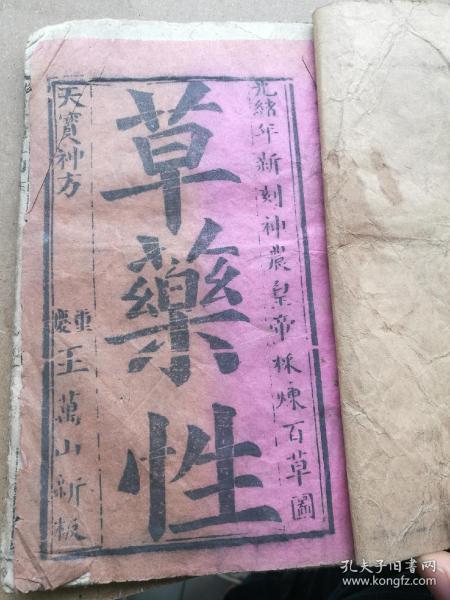 光緒年新刻神農皇帝採煉百草圖
草藥性
天寳神方
重慶王萬山新板
孔夫子旧书网
www.kongfz.com